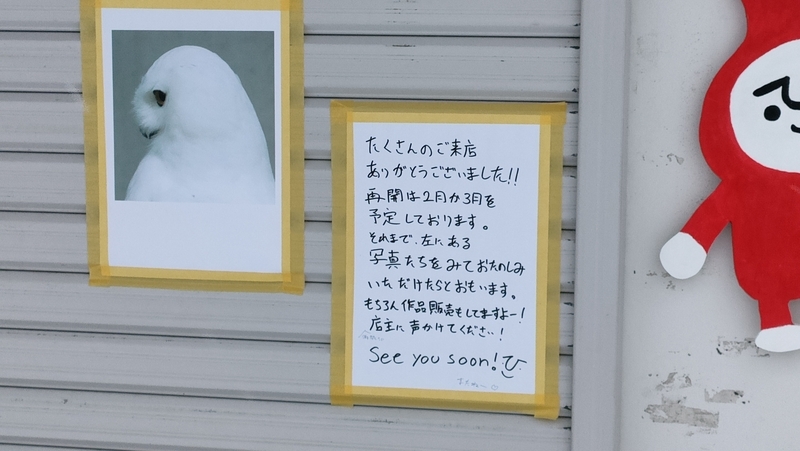 たくさんのご来店
ありがとうございました!!
再開は2月か3月を
予定しております。
それまで、左にある
写真たちをみておたのしみ
いただけたらとおもいます。
もちろん作品販売もしてますよー!
店主に声かけてください!
See you soon!